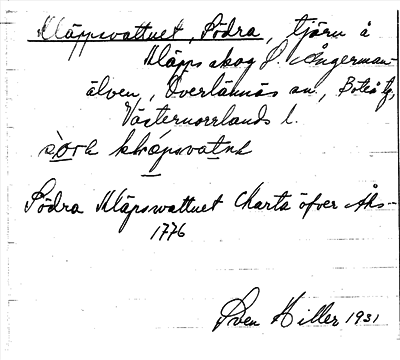 Kläppsvattnet, Södra, tjärn å
Kläpps skog S. Ångerman-
älven, Överlännäs sn., Boteå tg,
Västernorrlands l.
Södra Kläpswattnet Charta öfver Åks-
1776
Sven Hiller 1931